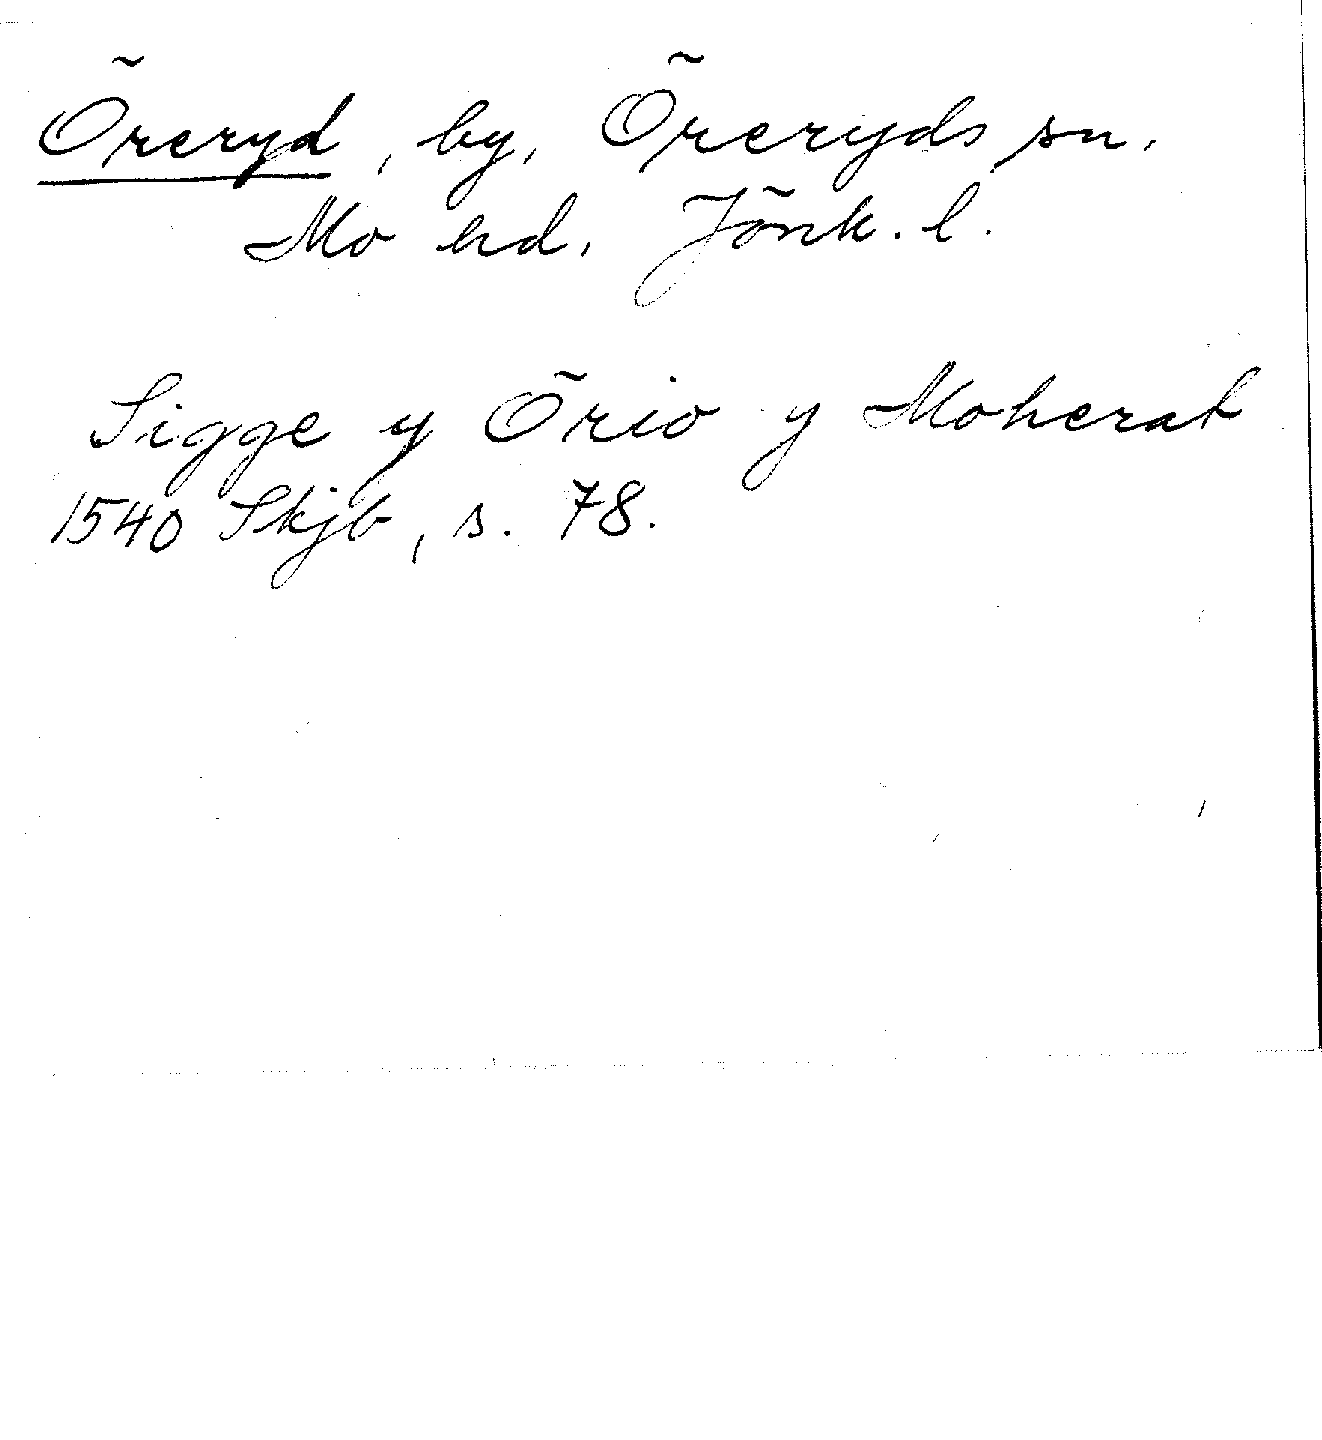 Öreryd, by, Öreryds sn.
Mo hd. Jönk. l.
Sigge y Örio y Moherat
1540 Skjb, s. 78.